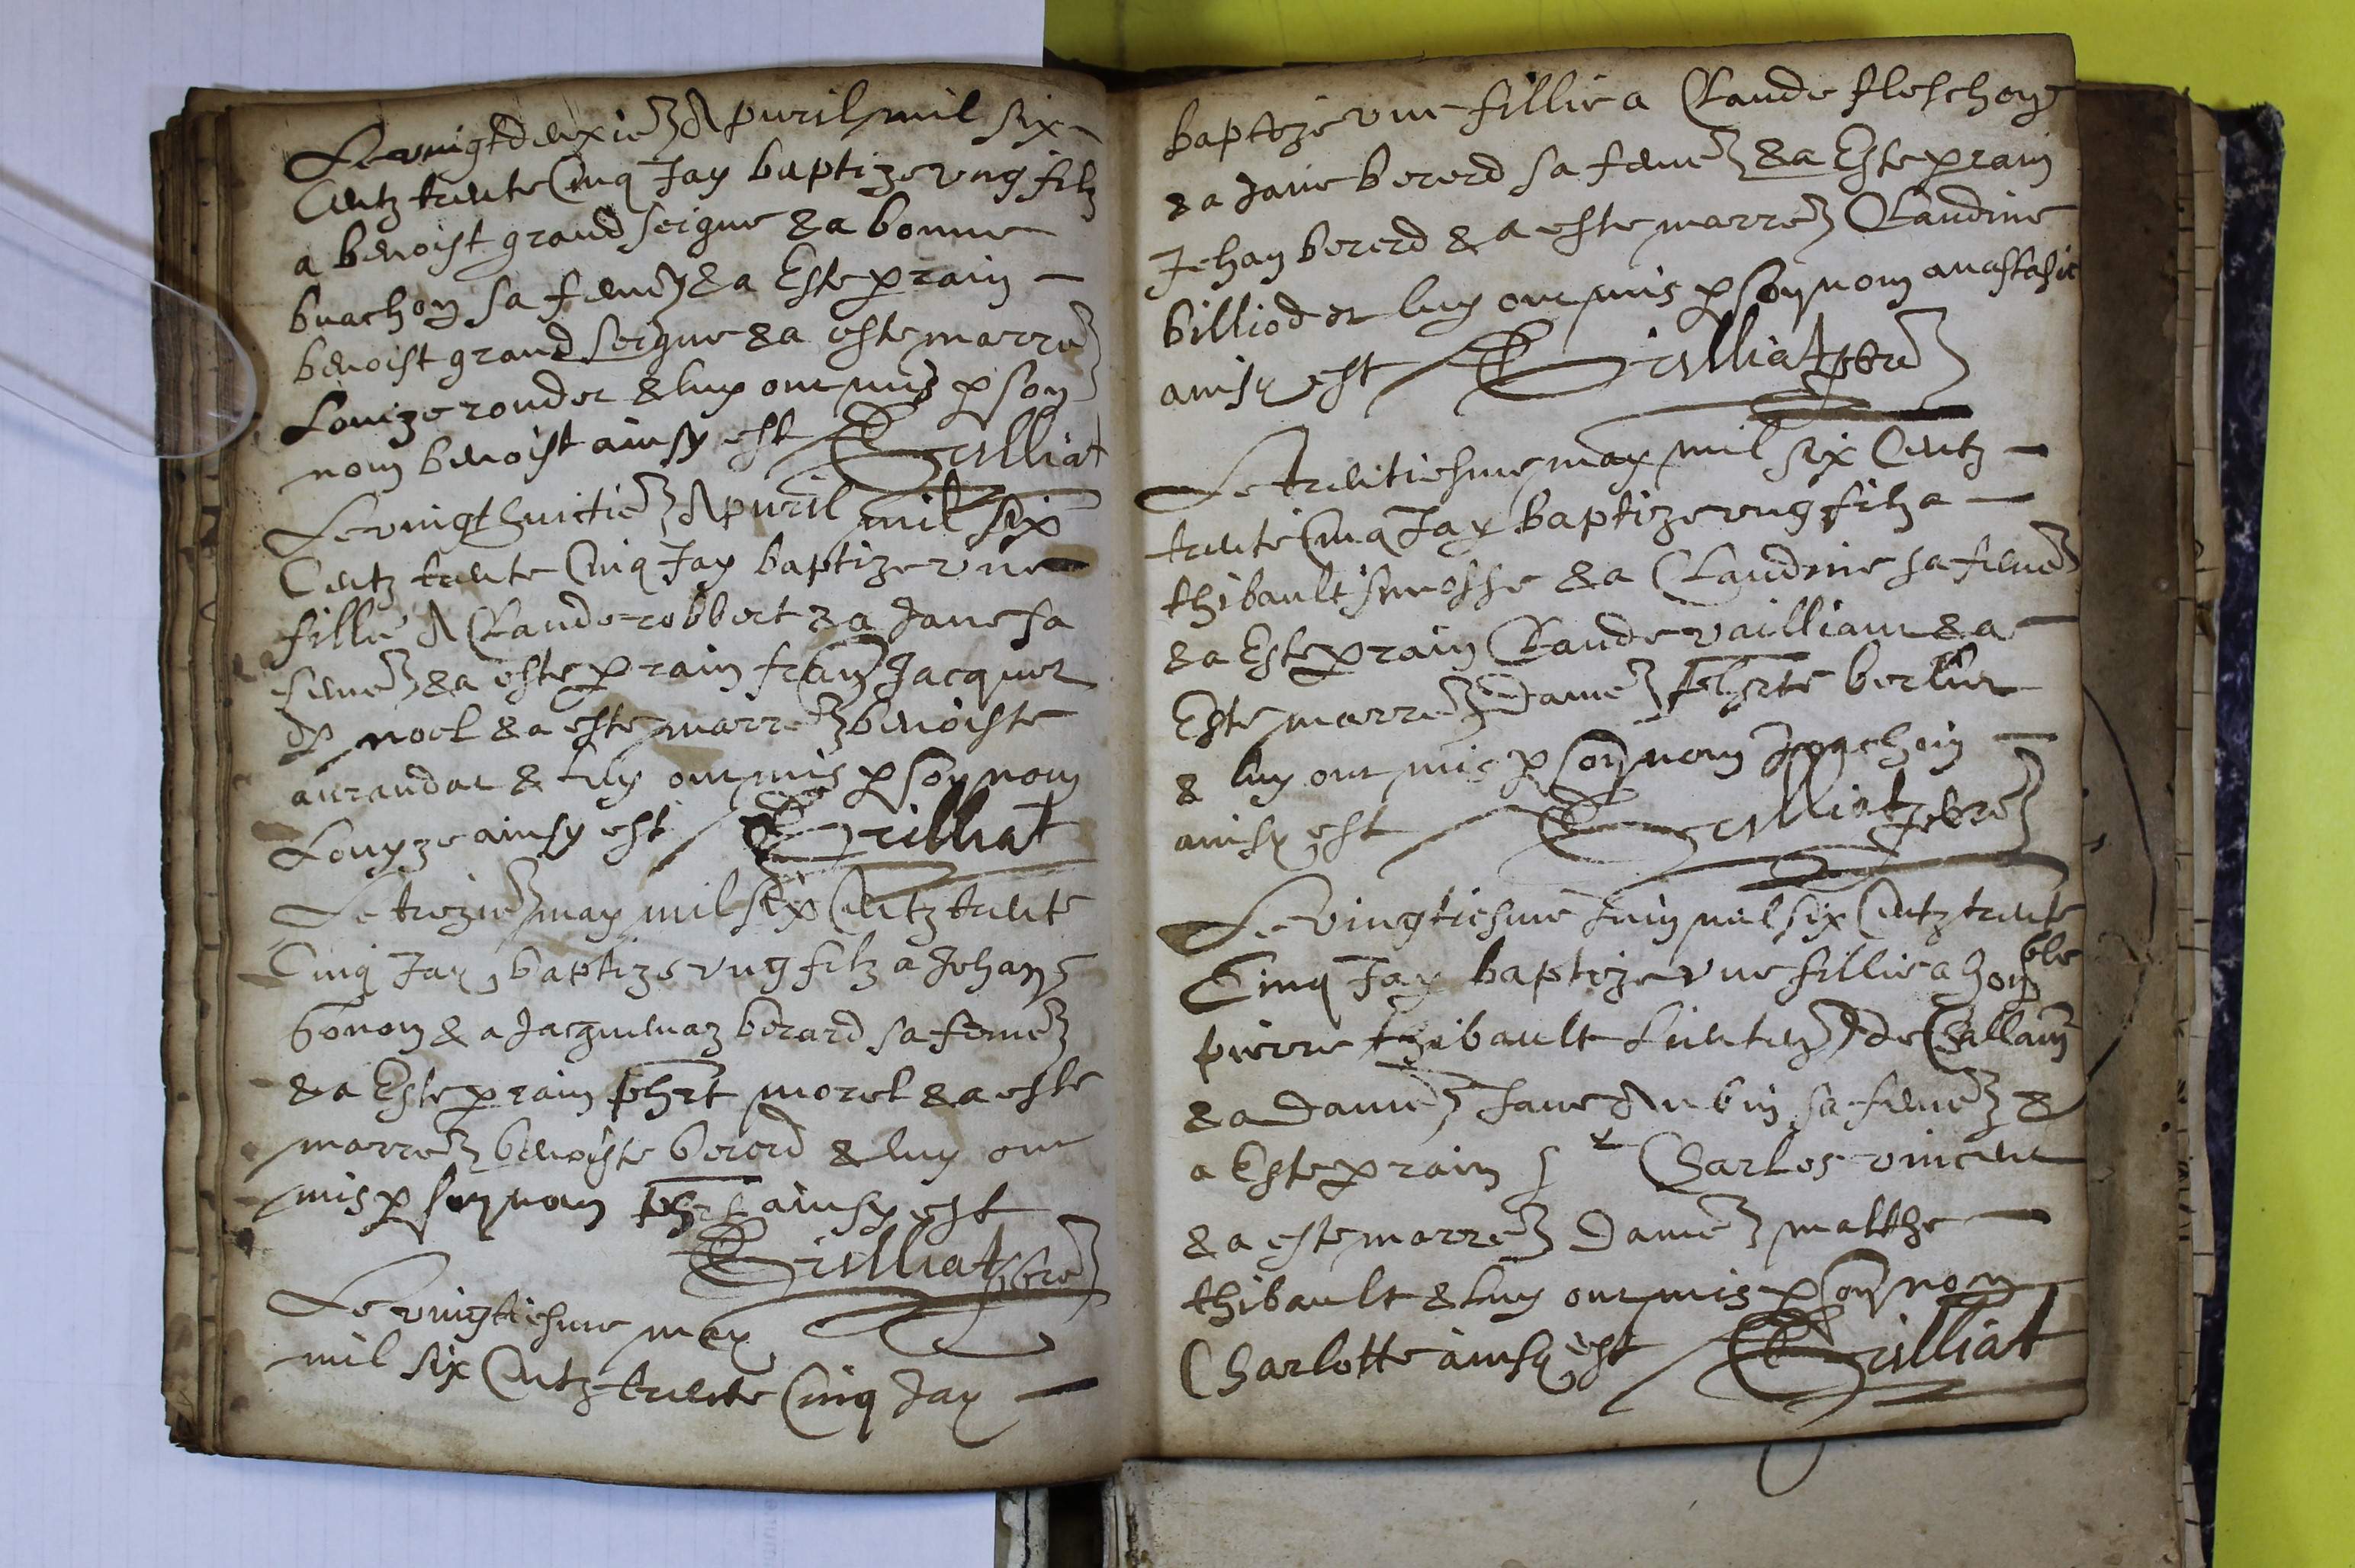 Le vingtdeuxie Apvril mil six
Centz trente Cinq Jay baptize ung filz
a benoist grand seigne & a bonne
buachon sa feme & a Este prain
benoist grand seigne & a este marre
Louize rondet & luy ont mis p son
nom benoist ainsy est Grilliat
Le vingt huictie Apvril mil six
Centz trente Cinq Jay baptize une
fille A Claude robbert & a Jane sa
feme & a este prain Jacquet
noel & a este marre benoiste
& luy ont mis p son nom
Louyze ainsy est Grilliat
Le trezie may mil six Centz trente
Cinq Jay baptize ung filz a Jehan
bonon & a Jacquemaz berard sa feme
& a Este prain phrt morel & a este
marre benoiste bererd & luy ont
mis p son nom phrt ainsy est
Grilliat pbre
Le vingtiesme may
mil six Centz trente Cinq Jay
baptize une fillie a Claude fleschon
& a Jane bererd sa feme & a Este prain
Jehan bererd & a este marre Claudine
billiod et luy ont mis p son nom anastasie
ainsy est Grilliat pbre
Le trentiesme may mil six Centz
trente Cinq Jay baptize ung filz a
thibault & a Claudine sa feme
& a Este prain Claude vailliant & a
Este marre Dame phrte
& luy ont mis p son nom Joachein
ainsy est Grilliat pbre
Le vingtiesme Juin mil six Centz trente
Cinq Jay baptize une fillie a honble
pierre thibault de
& a Dame Jane Aubin sa feme &
a Este prain Sr Charles vincent
& a este marre Dame malthe
thibault & luy ont mis p son nom
Charlotte ainsy est Grilliat